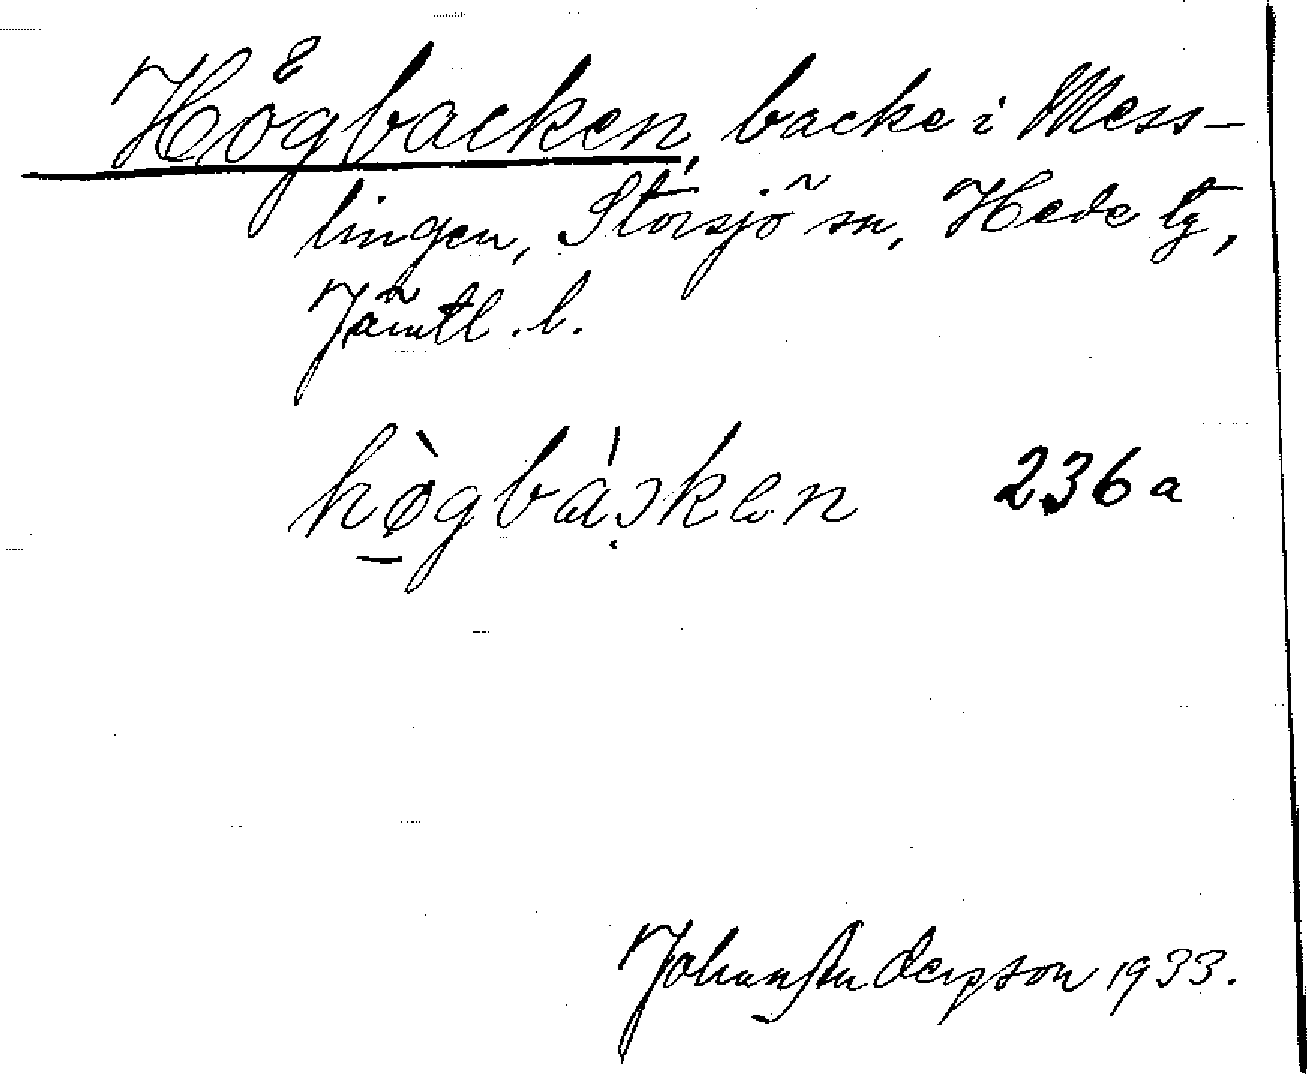 Högbacken, backe i Mess-
lingen, Storsjö sn, Hede tg,
Jämtl. l.
hògbáckan 236a
Johan Anderson 1933.